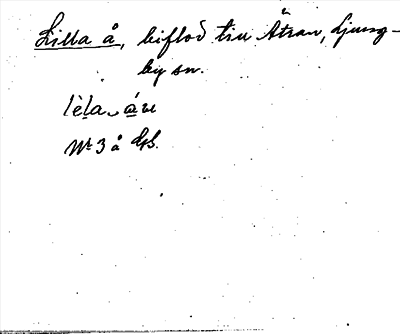 Lilla å, biflod till Ätran, Ljung-
by sn.
lela
Nr 3 å